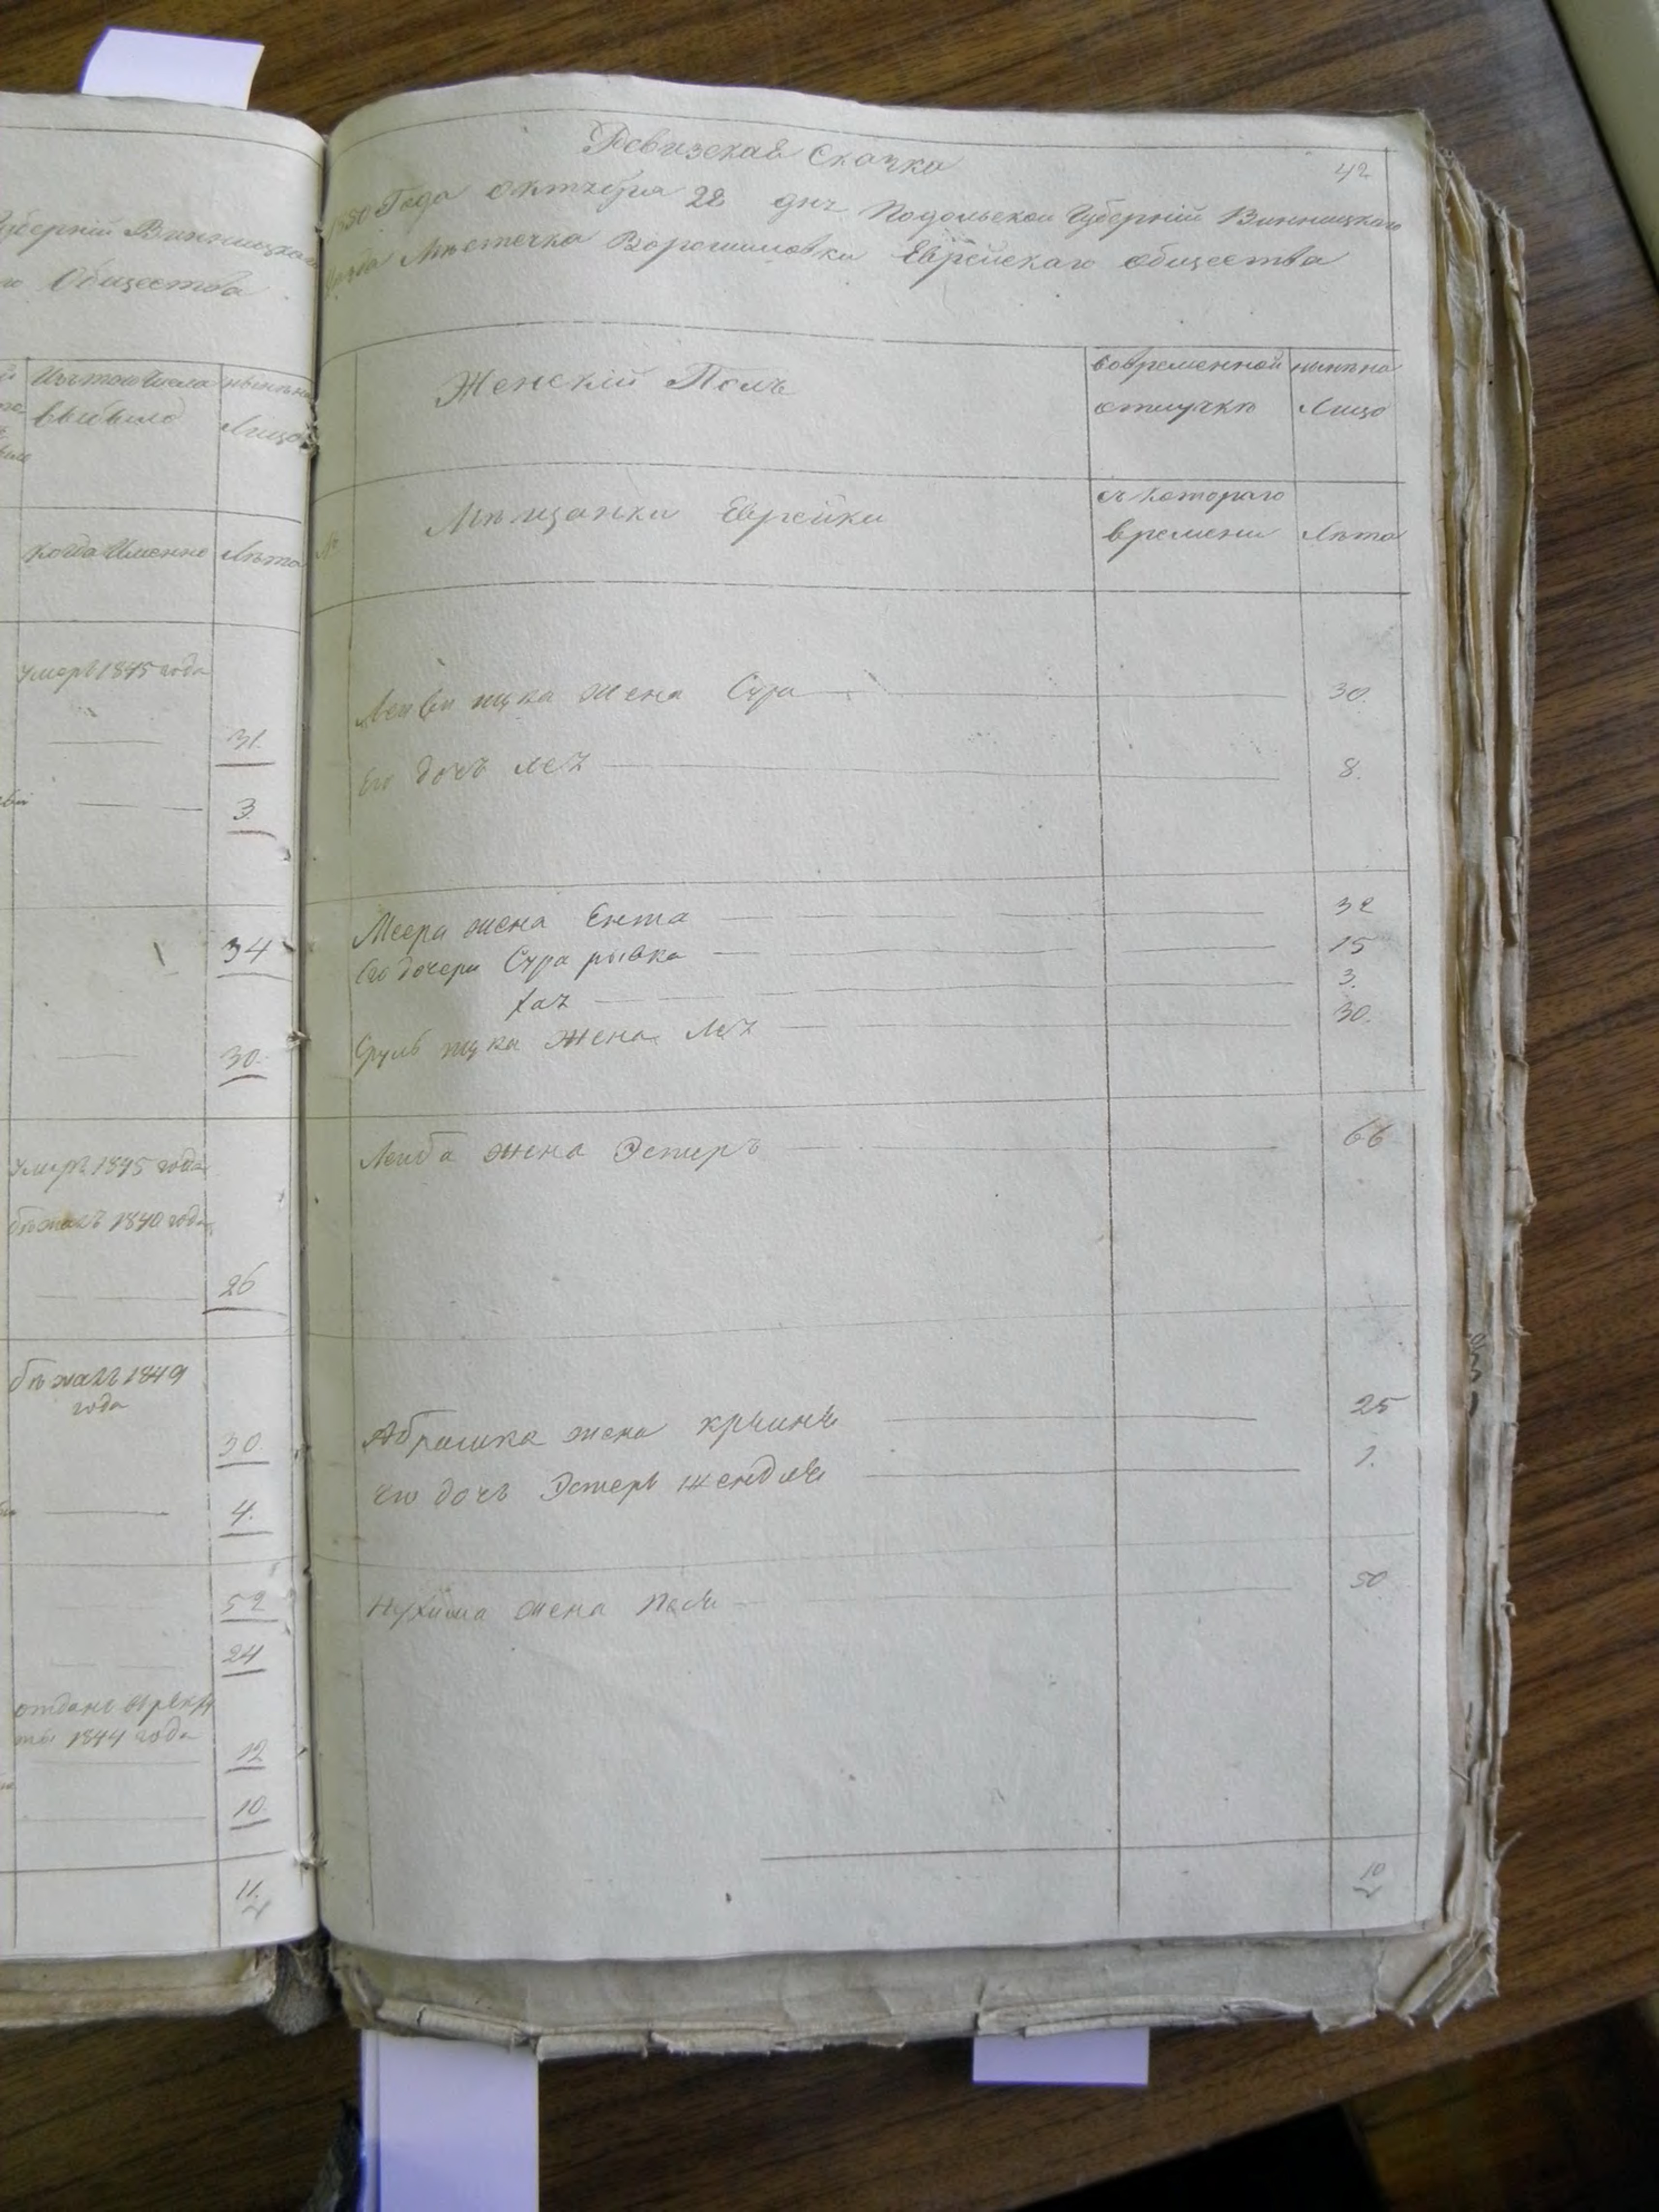 Губерній Винницкаго
Общества
Изъ того числа
выбыло
нынѣ на
Лицо
когда Именно
Лѣта
умеръ 1845 года
31.
3.
34
30.
умеръ 1845 года
бѣжалъ 1840 года
26
бѣжалъ 1849
года
30.
4.
52
24
отданъ въ рекру
ты 1844 года
12
10.
11.
Ревизская Сказка
42
1850 Года октября 22 дня Подольской Губерній Винницкаго
Уѣзда Мѣстечка Ворошиловки Еврейскаго общества
Женскій Полъ
во временной
отлучкѣ
нынѣ на
Лицо
№
Мѣщанки Еврейки
съ котораго
времени
Лѣта
Лейби ицка жена Сура 30.
Его дочь лея 8.
Меера жена Ента 32
Его дочери Сура рывка 15
хая 3.
Сруль ицка жена Лея 30.
Лейба жена Эстеръ 66
Абрамка жена крейня 25
его дочь Эстеръ шендля 1.
Нухима жена песя 50
10